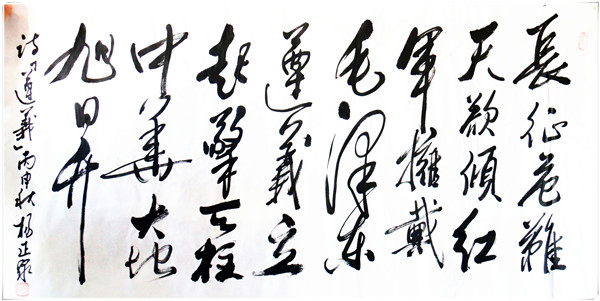 長征危難
天欲傾红
軍擁戴
毛泽东
遵義立
起擎天柱
中華大地
旭日升
诗「遵義」丙申秋杨正泉